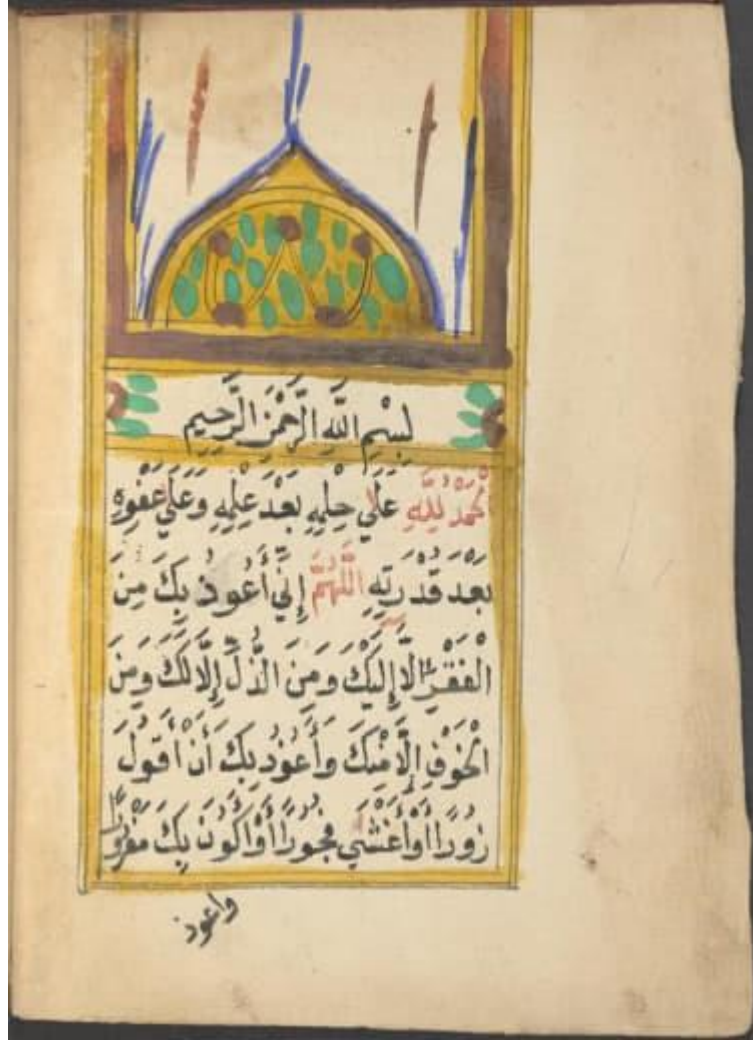 بِسْمِ اللَّهِ الرَّحْمَنِ الرَّحِيمِ
اَلْحَمْدُ لِلَّهِ عَلَي حِلْمِهِ بَعْدَ عِلْمِهِ وَعَلَي عَفْوِهِ
بَعْدَ قُدْرَتِهِ اللَّهُمَّ إِنِّي أَعُوذُ بِكَ مِنَ
الْفَقْرِ إِلَّا إِلَيْكَ وَمِنَ الذُّلِّ إِلَّا لَكَ وَمِنَ
الْخَوْفِ إِلَّا مِنْكَ وَأَعُوذُ بِكَ أَنْ أَقُولَ
زُورًا أَوْ أَغْشَي فُجُورًا أَوْ أَكُونَ بِكَ مَغْرُورًا
واعوذ